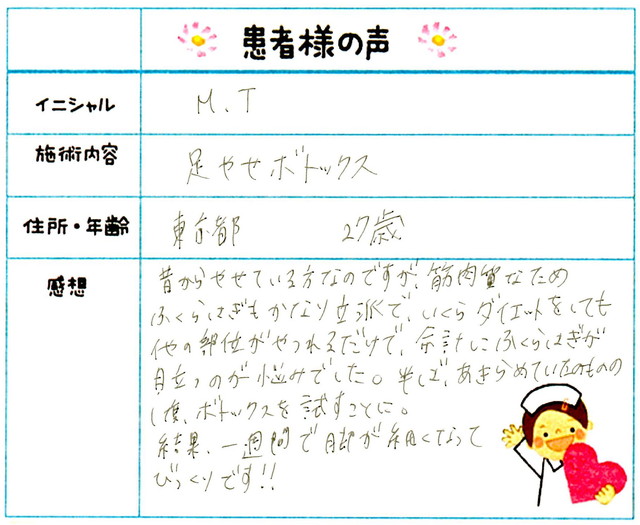 患者様の声
イニシャル M.T
施術内容 足やせボトックス
住所・年齢 東京都 27歳
感想
昔からやせている方なのですが、筋肉質なため
ふくらはぎもかなり立派で、いくらダイエットをしても
他の部位がやつれるだけで、余計にふくらはぎが
目立つのが悩みでした。半ば、あきらめていたものの
1度、ボトックスを試すことに。
結果、一週間で脚が細くなって
びっくりです!!